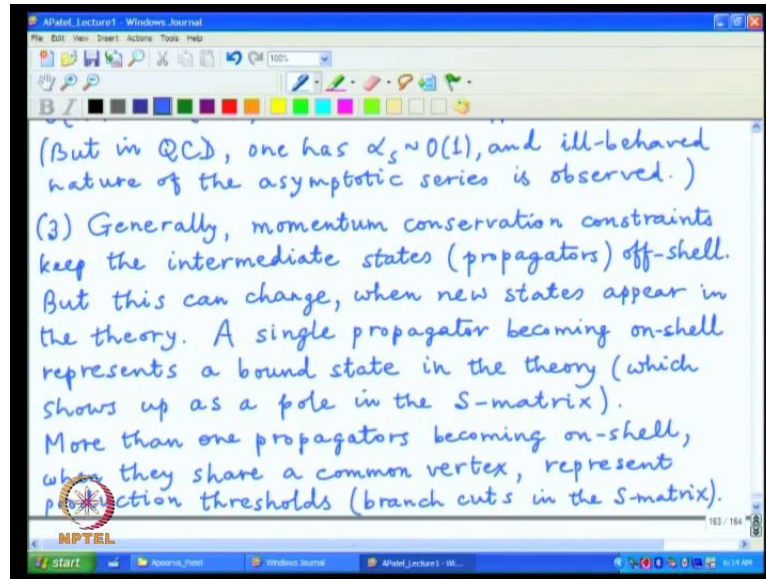 APatel_Lecture1 - Windows Journal
File Edit View Insert Actions Tools Help
100%
B I
(But in QCD, one has αs ~ O(1), and ill-behaved
nature of the asymptotic series is observed.)
(3) Generally, momentum conservation constraints
keep the intermediate states (propagators) off-shell.
But this can change, when new states appear in
the theory. A single propagator becoming on-shell
represents a bound state in the theory (which
shows up as a pole in the S-matrix).
More than one propagators becoming on-shell,
when they share a common vertex, represent
production thresholds (branch cuts in the S-matrix).
163 / 164
NPTEL
start Apoorva_Patel Windows Journal APatel_Lecture1 - Wi... 6:14 AM